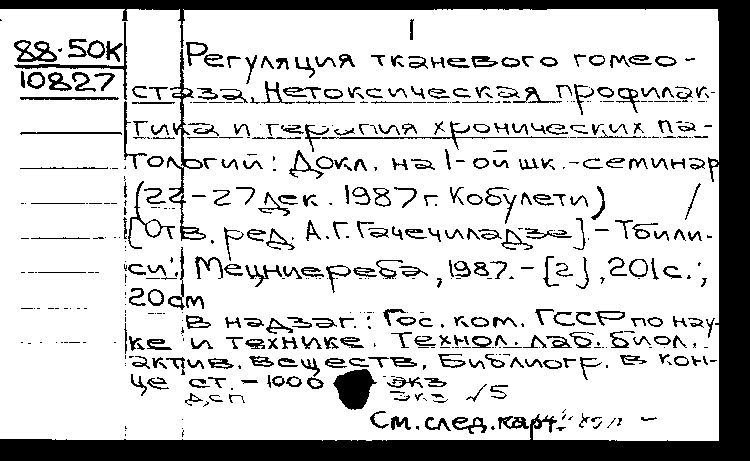 1
88-50К
10827
Регуляция тканевого гомео-
стаза. Нетоксическая профилак-
тика и терапия хронических па-
тологий: Докл. на 1-ой шк.-семинар
(22-27 дек. 1987 г. Кобулети) /
[Отв. ред. А.Г. Гачечиладзе]. - Тбили-
си: Мецниереба, 1987. - [2], 201 с.;
20 см
В надзаг.: Гос. ком. ГССР по нау-
ке и технике. Технол. лаб. биол.
актив. веществ. Библиогр. в кон-
це ст. - 1000 экз
ДСП экз √5
См. след. карт.